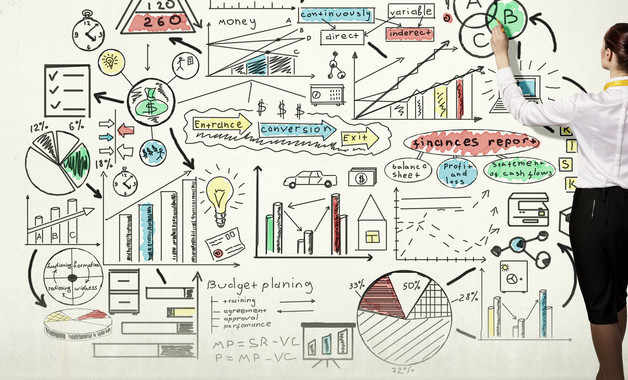 120
260
money
A
B
D
C
continuously
variable
direct
inderect
A
B
C
Entrance
conversion
Exit
finances report
balance
sheet
Profit
and
loss
statement
of cash flows
R
I
S
K
12%
6%
18%
A B C
Budget planing
training
agreement
approval
perfomance
MP = SR-VC
P = MP -VC
33%
50%
28%
72%